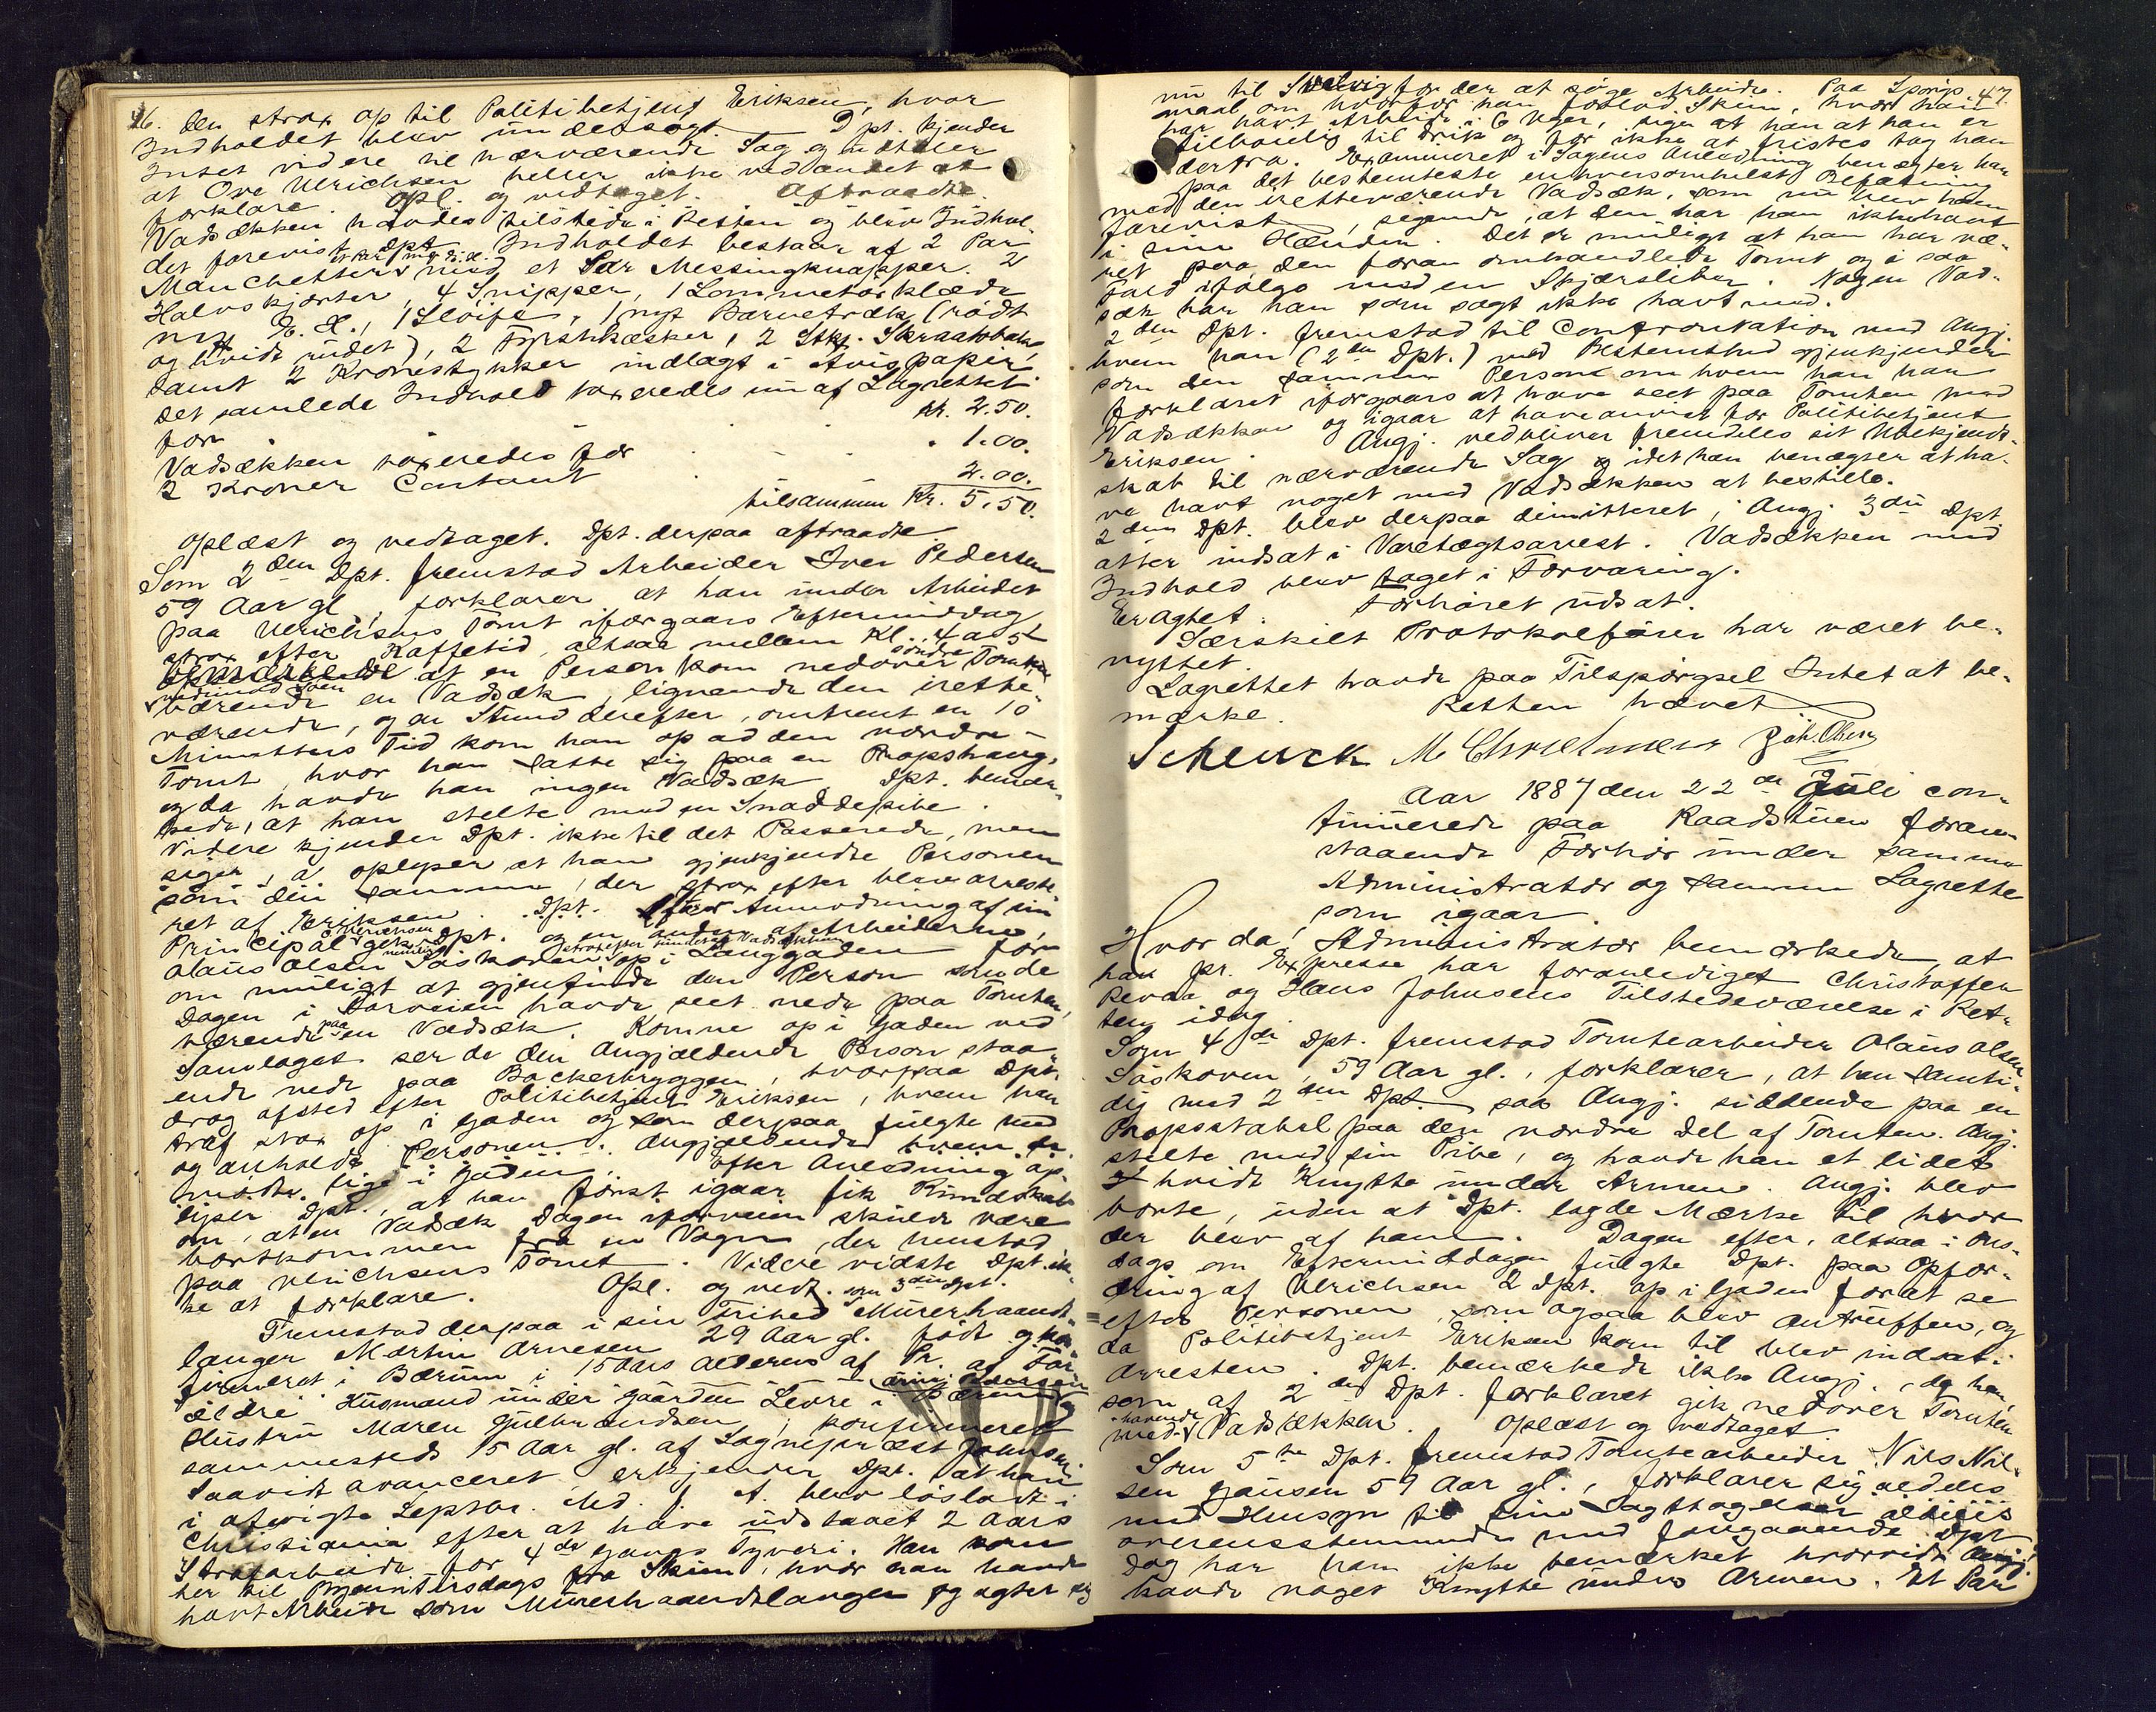 46. den strax op til Politibetjent Eriksen, hvor
Indholdet blev undersøgt. Dpt. kjender
Intet videre til nærværende Sag og udtaler
at Ove Ulrichsen heller ikke ved andet at
forklare. Opl. og vedtaget. Aftraadte.
Vadsækken havdes tilstede i Retten og blev Indhol-
det forevist Dpt. Indholdet bestaar af 2 Par
Manchetter med et Par Messingknapper. 2
Halvskjorter, 4 Snipper, 1 Lommetørklæde
mrk. E. H., 1 Sløife, 1 nyt Barnetræk (rødt
og hvidt rudet), 2 Fyrstikæsker, 2 Stkr. Skraatobak
samt 2 Kronestykker indlagt i Avispapir,
det samlede Indhold taxeredes nu af Lagrettet
for kr. 2.50.
Vadsækken taxeredes for . . . 1.00.
2 Kroner Contant . 2.00.
tilsammen Kr. 5.50.
Oplæst og vedtaget. Dpt. derpaa aftraadte.
Som 2den Dpt. fremstod Arbeider Iver Pedersen
59 Aar gl., forklarer at han under Arbeidet
paa Ulrichsens Tomt iforgaars Eftermiddag
strax efter Kaffetid, altsaa mellem Kl. 4 a 5
bemærkede at en Person kom nedover søndre Tomten
værende en Vadsæk, lignende den irette-
værende, og en Stund derefter, omtrent en 10
Minutters Tid kom han op ad den nordre
Tomt, hvor han satte sig paa en Propshaug,
og da havde han ingen Vadsæk. Dpt. bemær-
kede, at han stelte med en Snaddepibe.
Videre kjender Dpt. ikke til det Passerede, men
siger, a oplyser at han gjenkjendte Personen
som den samme, der strax efter blev arreste-
ret af Eriksen. Dpt. efter Anmodning af sin
Principal Ulrichsen gik Dpt. og en anden af Arbeiderne,
Olaus Olsen Søskoven strax efter op i Langgaden for
om muligt at gjenfinde den Person som de
Dagen i Forveien havde seet nede paa Tomten,
bærende paa en Vadsæk. Komne op i Gaden ved
Samlaget ser de den Angjældende Person staa-
ende nede paa Backerbryggen, hvorpaa Dpt.
drog afsted efter Politibetjent Eriksen, hvem han
traf strax op i Gaden og som derpaa fulgte med
og anholdt Personen. Angjældende hvem de
mødte lige i Gaden. Efter Anledning op-
lyser Dpt., at han først igaar fik Kundskab
om, at en Vadsæk Dagen iforveien skulde være
bortkommen fra en Vogn, der henstod
paa Ulrichsens Tomt. Videre vidste Dpt. ik-
ke at forklare. Opl. og vedt. som 3die Dpt.
Fremstod derpaa i sin Frihed Murerhaandt-
langer Martin Arnesen 29 Aar gl. født og kon-
firmeret i Bærum i 15 Aars Alderen af Pr. af For-
ældre Husmand under Gaarden Levre i Bærum og
Hustru Maren Gulbrandsen, konfirmeret
sammesteds 15 Aar gl. af Sognepræst Johnsen.
Saavidt avanceret, erkjender Dpt. at han
i afvigte Septbr. Md. f. A. blev løsladt i
Christiania efter at have udstaaet 2 Aars
Strafarbeide for 4de Gangs Tyveri. Han kom
her til Byen Tirsdags fra Skien, hvor han havde
havt Arbeide som Murerhaandtlanger og agter sig
47.
nu til Svelvig for der at søge Arbeide. Paa Spørgs-
maal om hvorfor han forlod Skien, hvor han
har havt Arbeide i 6 Uger, siger at han at han er
tilbøielig til Drik og for ikke at fristes tog han
derfra. Examineret i Sagens Anledning benægter han
paa det bestemteste enhversomhelst Befatning
med den iretteværende Vadsæk, som nu blev ham
forevist, sigende, at den har han ikke havt
i sine Hænder. Det er muligt at han har væ-
ret paa den foran omhandlede Tomt og i saa
Fald ifølge med en Skjærsliber. Nogen Vad-
sæk har han som sagt ikke havt med.
2den Dpt. fremstod til Confrontation med Angj.
hvem han (2den Dpt.) med Bestemthed gjenkjender
som den samme Person om hvem han har
forklaret iforgaars at have seet paa Tomten med
Vadsækken og igaar at have anvist for Politibetjent
Eriksen. Angj. vedbliver fremdeles sit Ubekjendt-
skab til nærværende Sag og idet han benægter at ha-
ve havt noget med Vadsækken at bestille.
2den Dpt. blev derpaa dimitteret; Angj. 3die Dpt.
atter indsat i Varetægtsarrest. Vadsækken med
Indhold blev taget i Forvaring.
Eragtet: Forhøret udsat.
Særskilt Protokolfører har været be-
nyttet.
Lagrettet havde paa Tilspørgsel Intet at be-
mærke. Retten hævet
Schenck M. Christensen Joh. Olsen
Aar 1887 den 22de Juli con-
tinuerede paa Raadstuen foran-
staaende Forhør under samme
Administrator og samme Lagrette
som igaar.
Hvor da! Administrator bemærkede, at
han pr. Expresse har foranlediget Christoffer
Revaa og Hans Johnsens Tilstedeværelse i Ret-
ten idag.
Som 4de Dpt. fremstod Tomtearbeider Olaus Olsen
Søskoven, 59 Aar gl., forklarer, at han samti-
dig med 2den Dpt. saa Angj. siddende paa en
Propsstabel paa den nordre Del af Tomten. Angj.
stelte med sin Pibe, og havde han et lidet
hvidt Knytte under Armen. Angj. blev
borte, uden at Dpt. lagde Mærke til hvor
der blev af ham. Dagen efter, altsaa i Ons-
dags om Eftermiddagen fulgte Dpt. paa Opfor-
dring af Ulrichsen 2 Dpt. op i Gaden for at se
efter Personen, som ogsaa blev antruffen, og
da Politibetjent Eriksen kom til blev indsat i
Arresten. Dpt. bemærkede ikke Angj., da han,
som af 2den Dpt. forklaret gik nedover Tomten
havende med Vadsækken. Oplæst og vedtaget.
Som 5te Dpt. fremstod Tomtearbeider Nils Nil-
sen Gausen 59 Aar gl., forklarer sig aldeles
med Hensyn til sine Iagttagelser
overensstemmende med foregaaende Dpt.
dog har han ikke bemærket hvorvidt Angj.
havde noget Knytte under Armen. Et Par